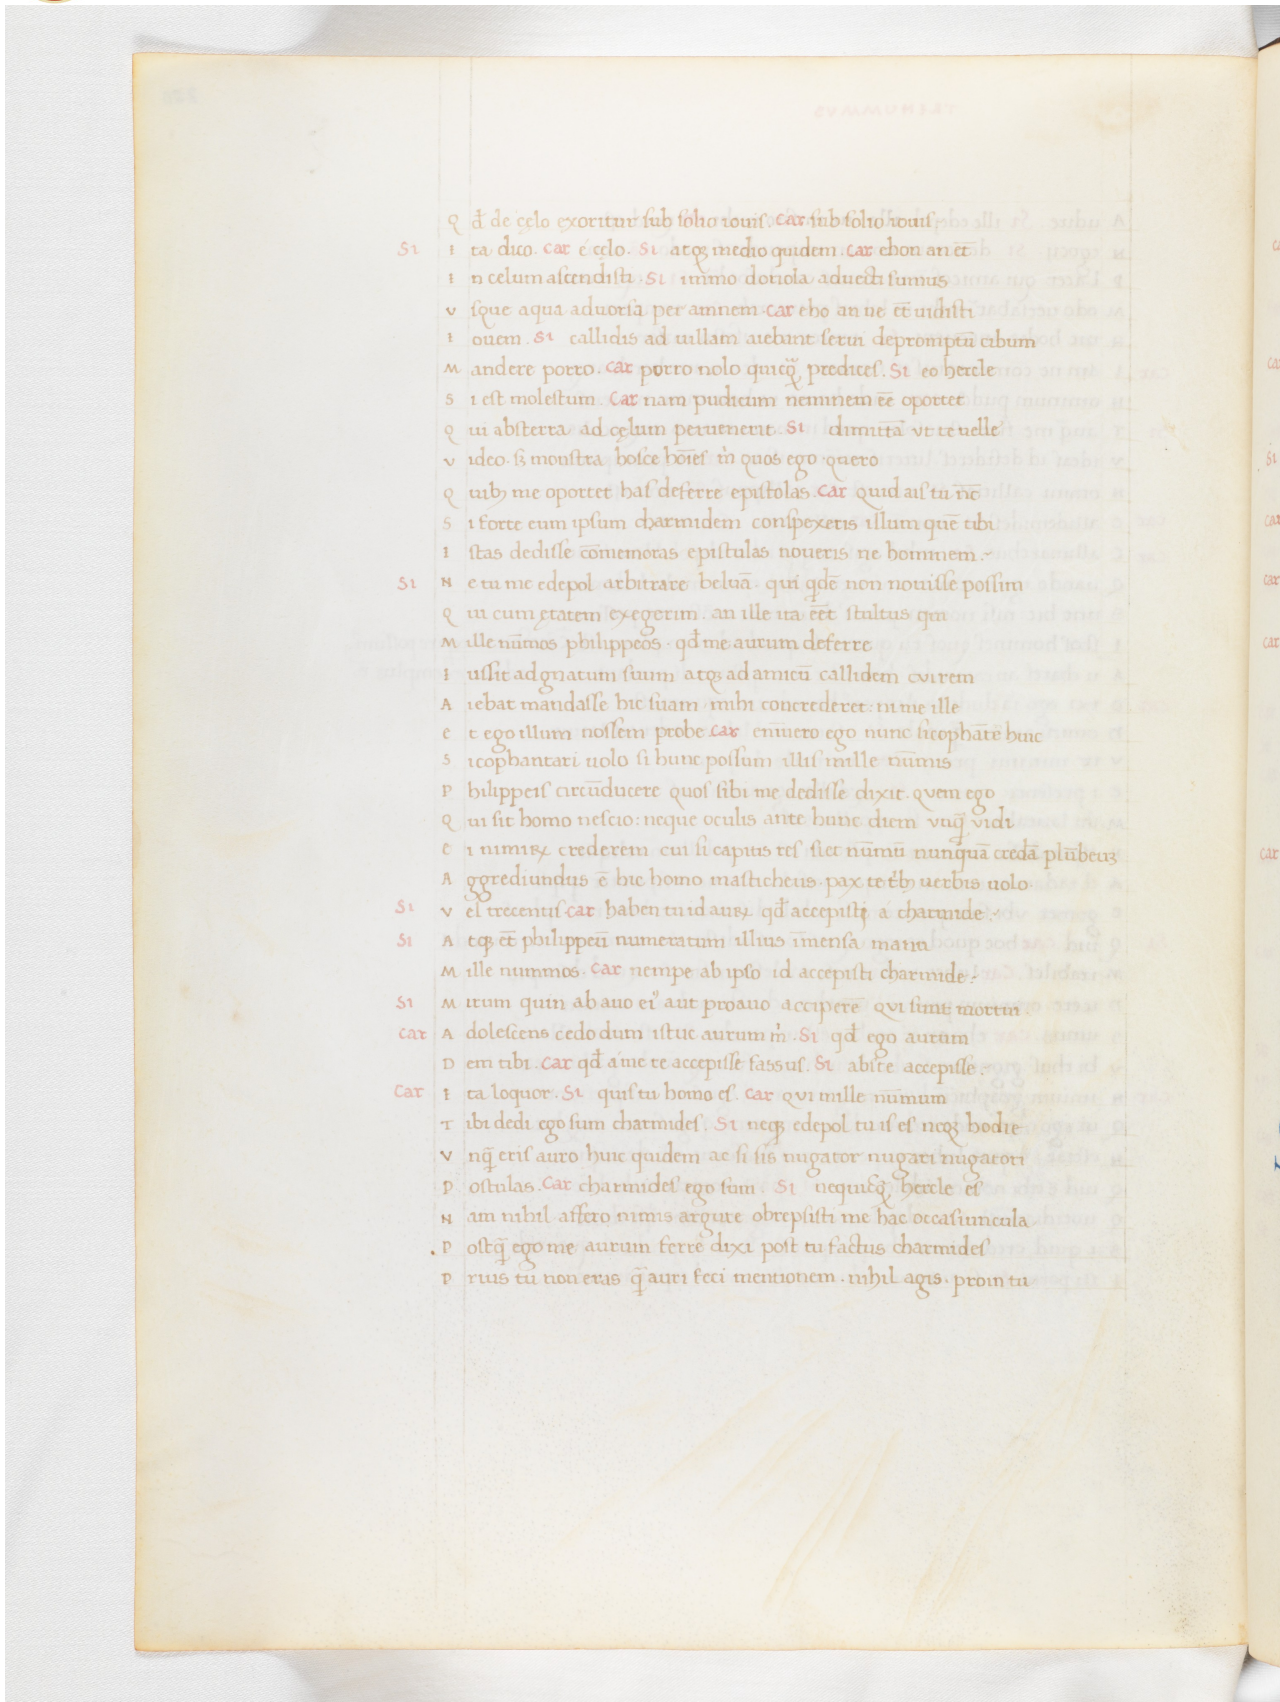 Q d̄ de cęlo exoritur sub solio iouis. Car sub solio iouis
Si I ta dico. Car é cęlo. Si atqꝫ medio quidem. Car ehon an et̄
I n celum ascendisti. Si immo dotiola aduecti sumus
V sque aqua aduorsa per amnem. Car eho an ne et̄ uidisti
I ouem. Si callidis ad uillam aiebant serui depromptū cibum
M andere porro. Car porro nolo quicꝗ̄ predices. Si eo hercle
S i est molestum. Car nam pudicum neminem eē oportet
Q ui absterra ad cęlum peruenerit. Si dimittā vt te uelle
V ideo. sꝫ monstra hosce hoīes m̊ quos ego quero
Q uibꝫ me oportet has deferre epistolas. Car quid ais tu nc̄
S i forte eum ipsum charmidem conspexeris illum quē tibi
I stas dedisse cōmemoras epistulas noueris ne hominem.
Si N e tu me edepol arbitrare beluā. qui qdē non nouisse possim
Q ui cum ętatem exegerim. an ille ita eēt stultus qui
M ille nūmos philippeos. qd̄ me aurum deferre
I ussit ad gnatum suum atqꝫ ad amicū callidem cui rem
A iebat mandasse hic suam mihi concrederet: ni me ille
E t ego illum nossem probe Car enīuero ego nunc sicophātē hinc
S icophantari uolo si hunc possum illis mille nūmis
P hilippeis circūducere quos sibi me dedisse dixit. quem ego
Q ui sit homo nescio: neque oculis ante hunc diem vnꝗ̄ vidi
E i nimiꝝ crederem cui si capitis res siet nūmū nunquā credā plūbeuꝫ
A ggrediundus ē hic homo masticheus. pax te tͥbꝫ uerbis uolo.
Si V el trecentis Car haben tu id auꝝ qd̄ accepisti á charmide.
Si A tqꝫ et̄ philippeū numeratum illius īmensa manu
M ille nummos. Car nempe ab ipso id accepisti charmide.
Si M irum quin ab auo eiꝰ aut proauo acciperē qui sunt mortui.
Car A dolescens cedo dum istuc aurum m̊. Si qd̄ ego aurum
D em tibi. Car qd̄ a me te accepisse fassus. Si abs te accepisse.
Car I ta loquor. Si quis tu homo es. Car qui mille nūmum
T ibi dedi ego sum charmides. Si neqꝫ edepol tu is es neqꝫ hodie
V nꝗ̄ eris auro huic quidem ac si sis nugator nugari nugatori
P ostulas. Car charmides ego sum. Si nequicꝗ̄ hercle es
N am nihil affero nimis argute obrepsisti me hac occasiuncula
P ostꝗ̄ ego me aurum ferrē dixi post tu factus charmides
P rius tu non eras ꝗ̄ auri feci mentionem. nihil agis. proin tu